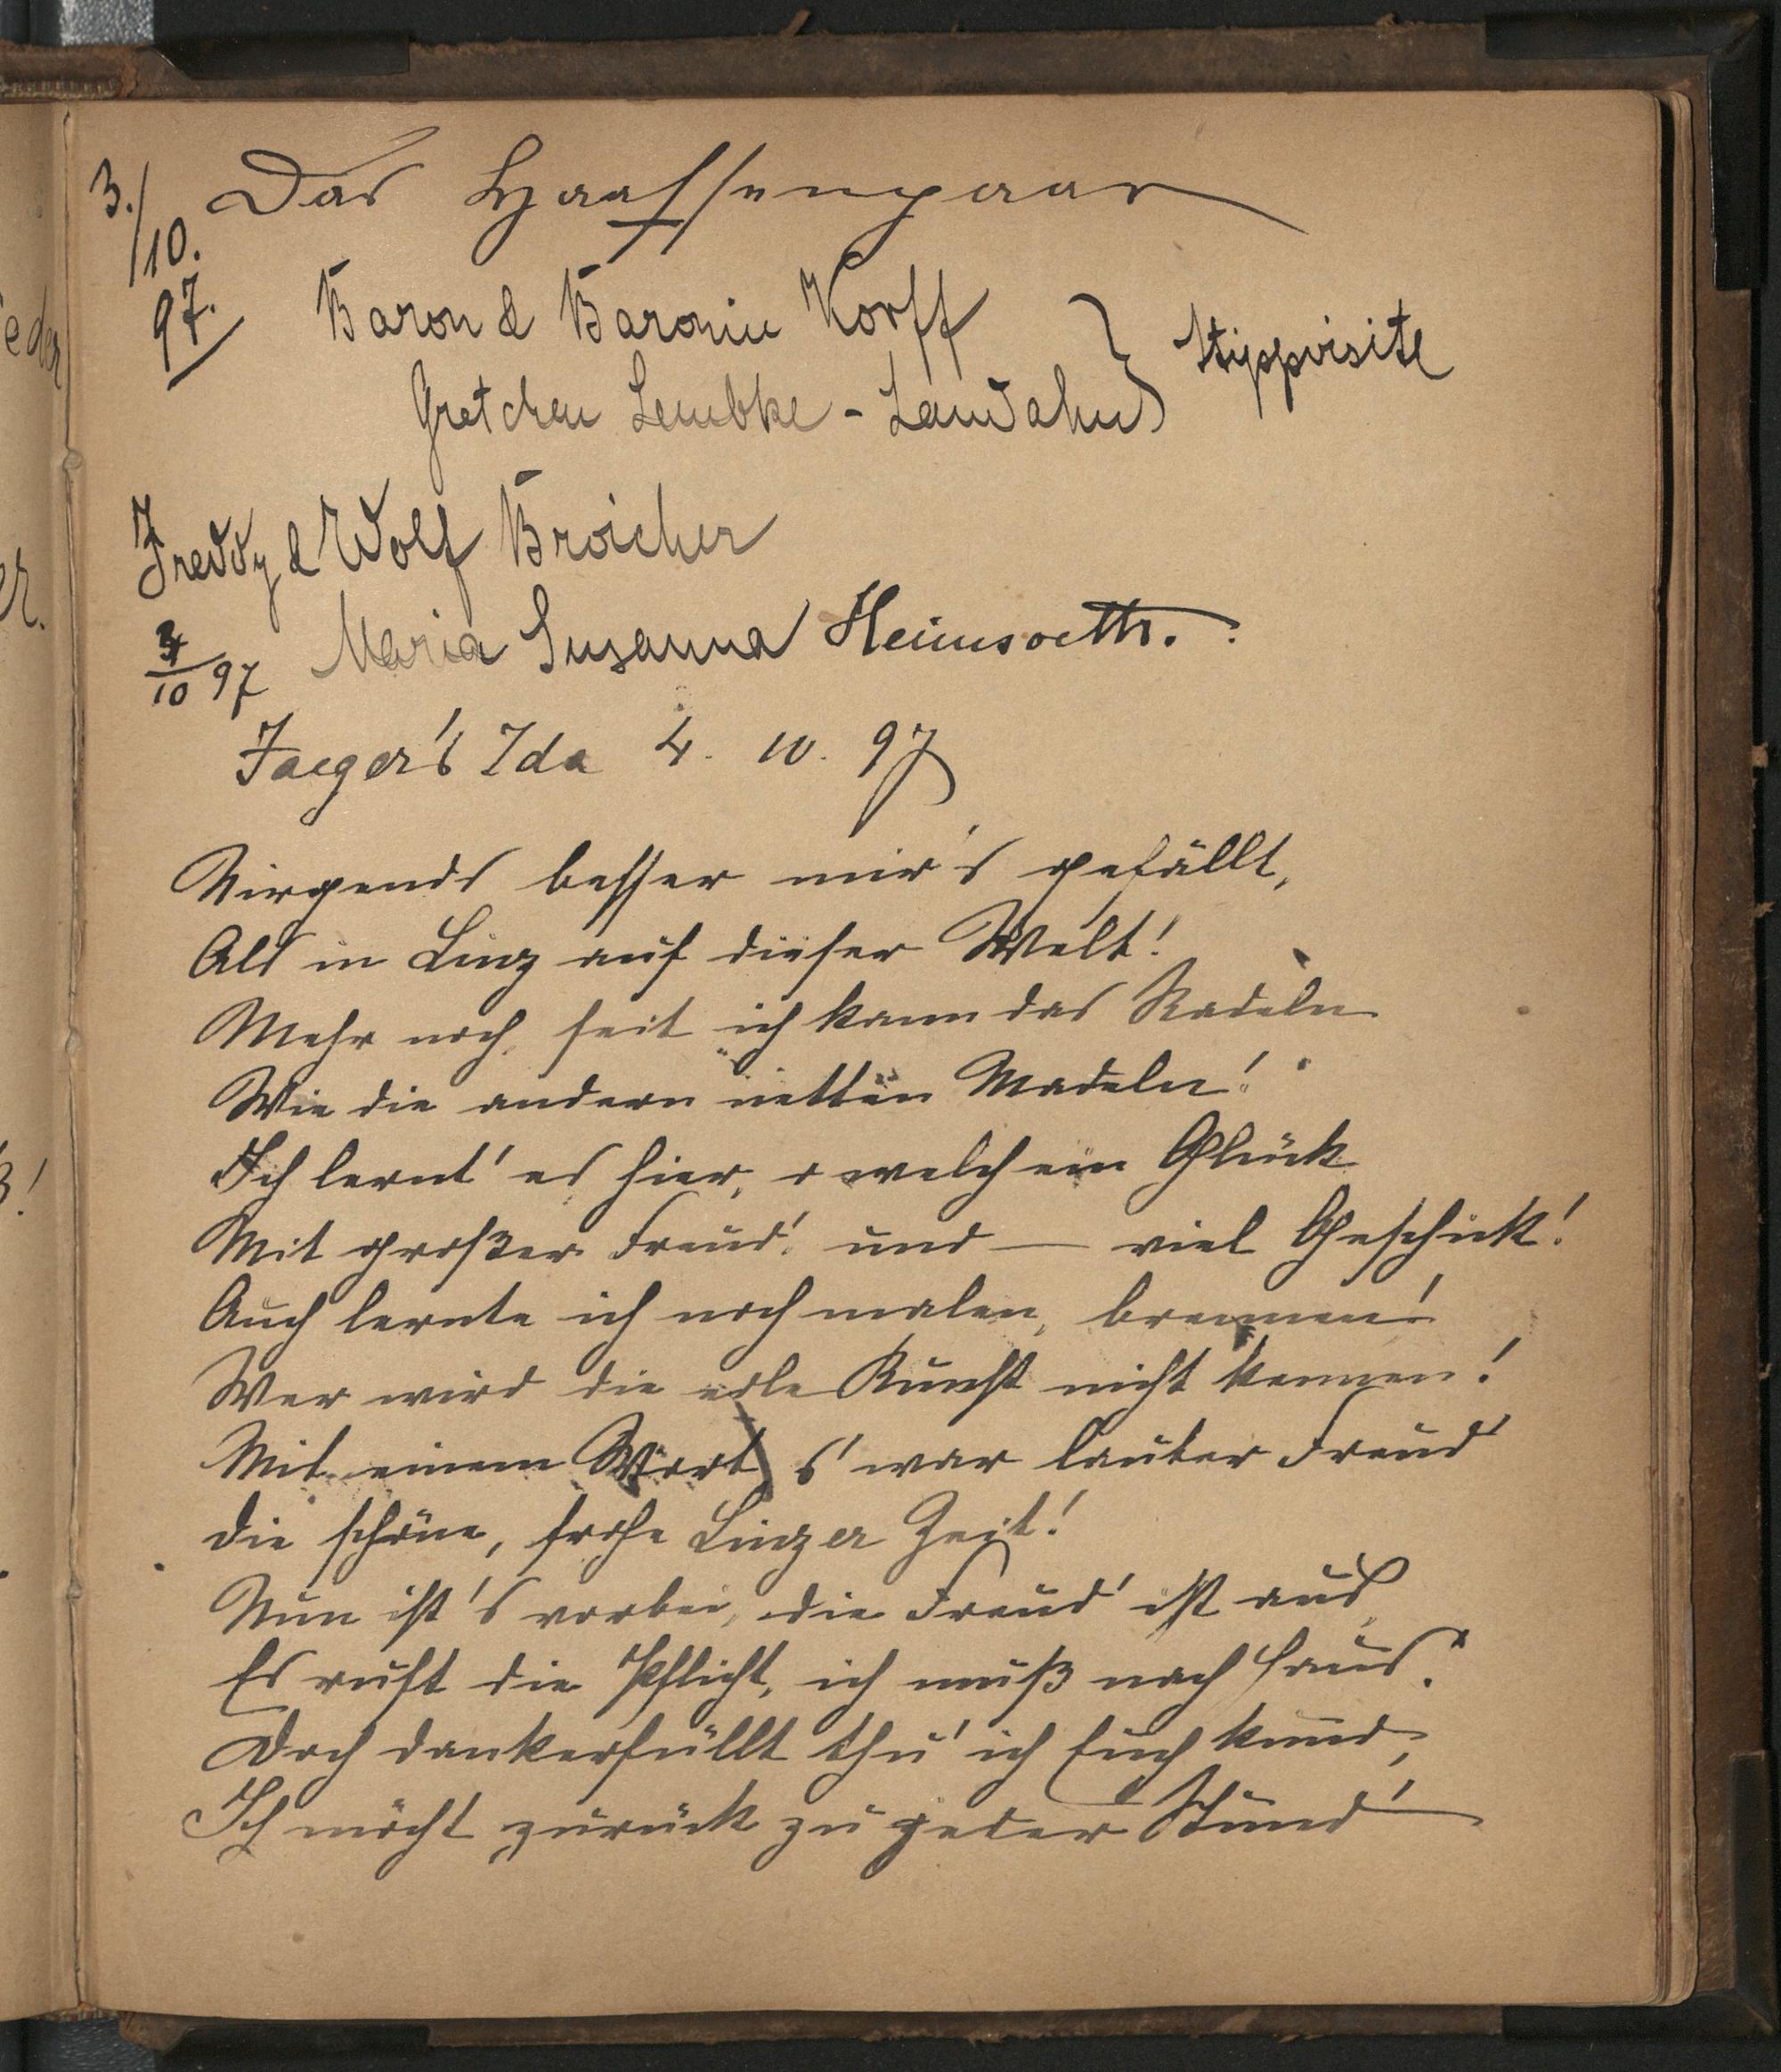 3./10.97. Das Haassenpaar
Baron & Baronin Korff
Gretchen Lembke-Landahn } Stippvisite
Freddy & Wolf Broicher
3/10 97 Maria Susanna Heimsoeth.
Jaeger's Ida 4. 10. 97
Nirgends besser mir's gefällt,
Als in Linz auf dieser Welt!
Mehr noch, seit ich kann das Radeln
Wie die andern netten Madeln!
Ich lernt' es hier, o welch ein Glück
Mit großer Freud' und — viel Geschick!
Auch lernte ich noch malen, brennen!
Wer wird die edle Kunst nicht kennen!
Mit einem Wort, s' war lauter Freud'
Die schöne, frohe Linzer Zeit!
Nun ist's vorbei, die Freud' ist aus,
Es ruft die Pflicht, ich muß nach Haus.
Doch dankerfüllt thu' ich Euch kund,
Ich möcht zurück zu jeder Stund'